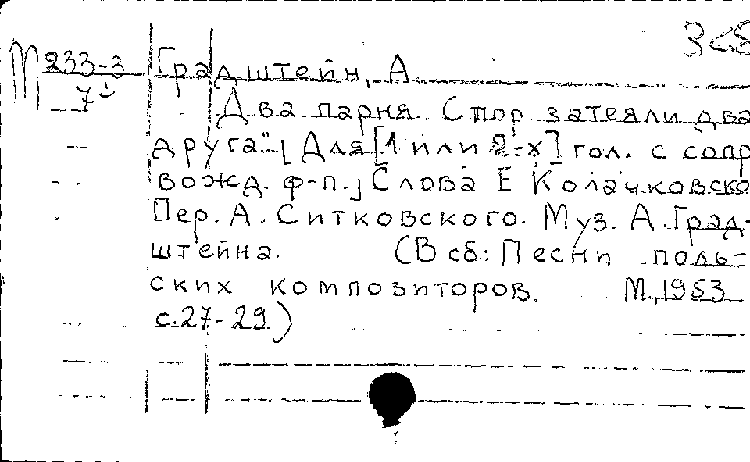 М 233-3 Градштейн, А
7
Два парня. Спор затеяли два
друга" [Для [1 или 2-х] гол. с сопр
вожд. ф-п.] Слова Е Колачковско
Пер. А. Ситковского. Муз. А. Град-
штейна. (В сб: Песни поль-
ских композиторов. М., 1953
с. 27-29.)